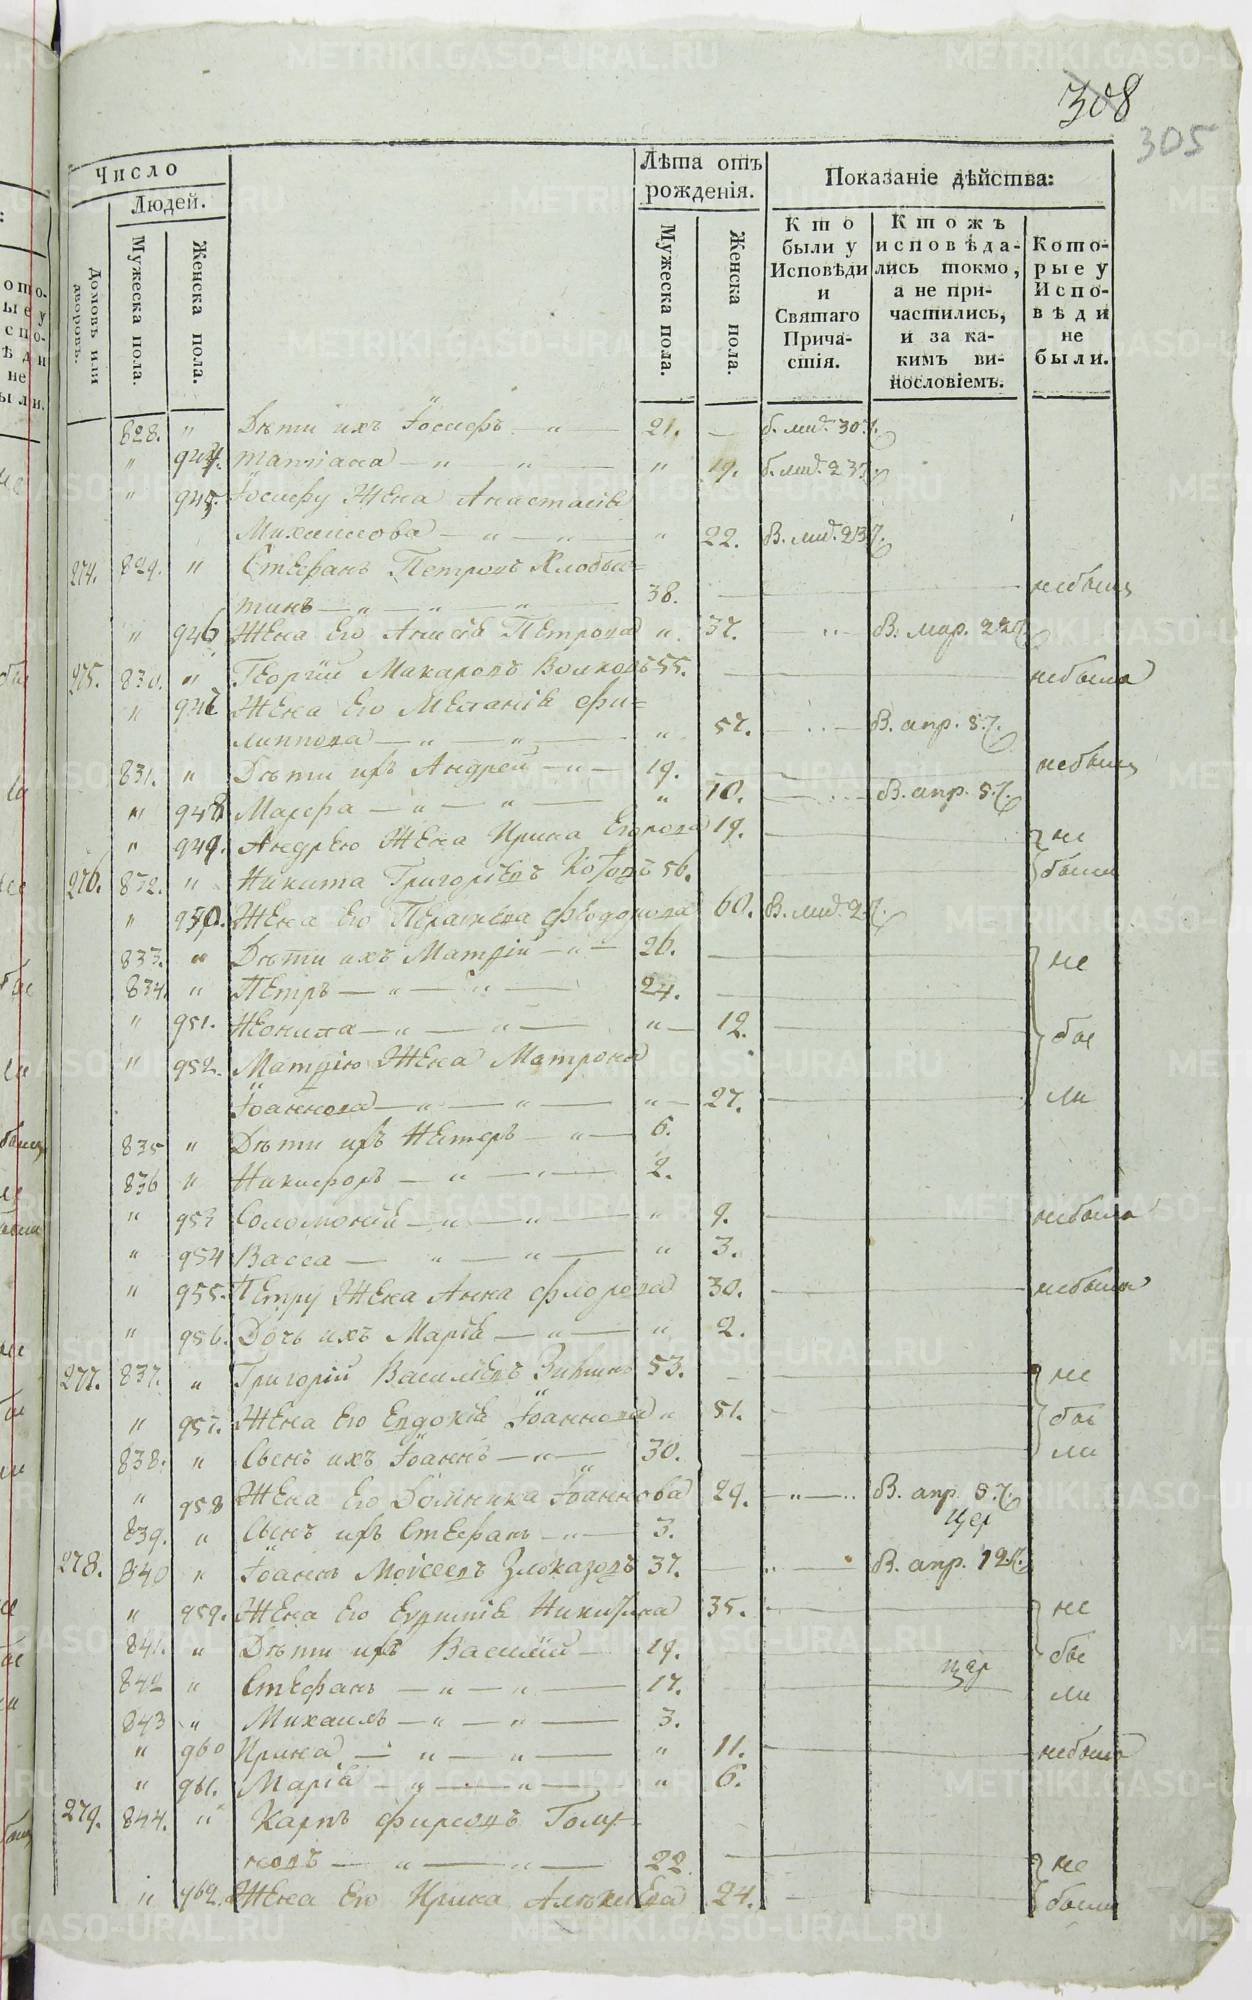 308
305
Число
Людей.
Домовъ или дворовъ.
Мужеска пола.
Женска пола.
Лѣта отъ рожденія.
Мужеска пола.
Женска пола.
Показаніе дѣйства:
Кто были у Исповѣди и Святаго Причастія.
Ктожъ исповѣдались токмо, а не причастились, и за какимъ винословіемъ.
Которые у Исповѣди не были.
828. " Дѣти ихъ Іосифъ — " — 21. —
" 944. Татіана — " — " — " 19.
" 945. Іосифу Жена Анастасія
Михаилова — " — " — " 22.
274. 829. " Стефанъ Петровъ
тинъ — " — " — " — 38. — небылъ
" 946 Жена Его Петрова " 37. — В. мар. 22
275. 830. " Георгій Макаровъ Волковъ 55. — небылъ
" Жена Его Меланія Фи=
липпова — " — " — " 57. — В. апр. 5.
831. " Дѣти ихъ Андрей — " — 19. — небылъ
" 948 Марфа — " — " — " 10. — В. апр. 5.
" 949. Андрею Жена Ирина Егорова 19. — не
276. 832. " Никита Григорьевъ 56. были
" 950. Жена Его Федорова 60.
833. " Дѣти ихъ — " — 26. — не
834. " Петръ — " — " — 24. —
" 951. Неонила — " — " — " — 12. бы
" 952. Жена Матрона
Іоаннова — " — " — " — 27. — ли
835 " Дѣти ихъ Нестеръ — " — 6.
836 " Никифоръ — " — " — 2.
" 953 Соломонія — " — " — " 9. — небыла
" 954 Васса — " — " — " 3.
" 955. Петру Жена Анна Флорова 30. — небыла
" 956. Дочь ихъ Марія — " — " 2.
277. 837. " Григорій Васильевъ 53. — не
" 957. Жена Его Евдокія Іоаннова " 51. — бы
838. " Сынъ ихъ Іоаннъ — " — 30. — ли
" 958 Жена Его Домника Іоаннова 29. — " — В. апр. 5.
839. " Сынъ ихъ Стефанъ — " — 3.
278. 840 " Іоаннъ Моисеевъ Злоказовъ 37. — " В. апр. 12
" 959. Жена Его Никитина 35. — не
841. " Дѣти ихъ Василій — 19. бы
842 " Стефанъ — " — " — 17. — ли
843 " Михаилъ — " — " — 3.
" 960 Ирина — " — " — " 11. — небыла
" 961. Марія — " — " — " 6.
279. 844. " Карпъ Фирсовъ
— " — " — 22 — не
" 962. Жена Его Ирина Алексѣева 24. — были
METRIKI.GASO-URAL.RU